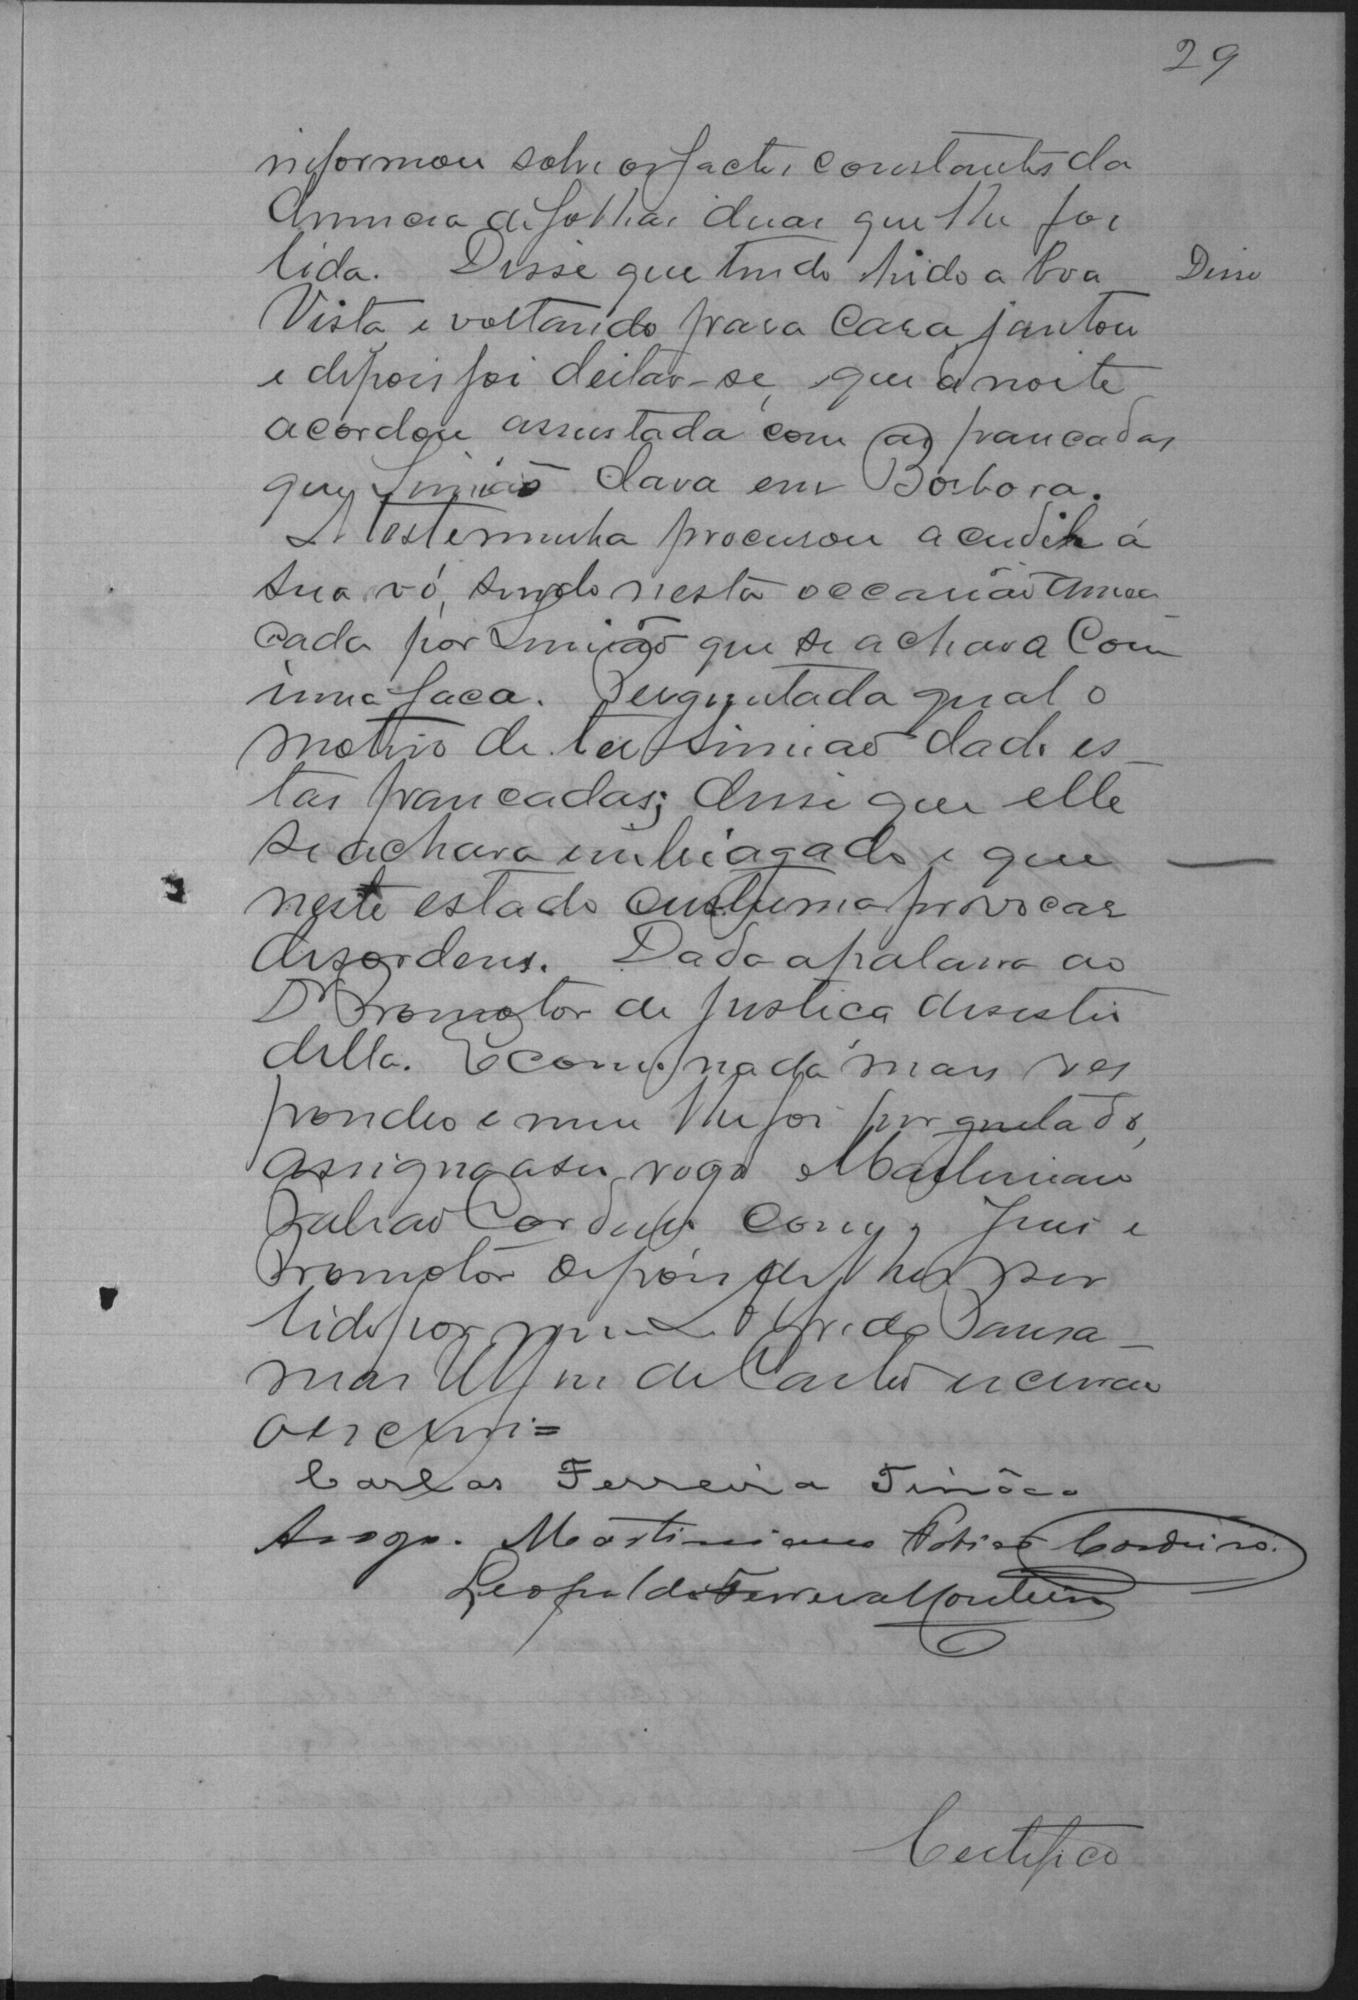 29
informou sobre os factos constantes da
denuncia de folhas duas que lhe foi
lida. Disse que tendo hido a boa
Disse
Vista e voltando para casa, jantou
e depois foi deitar-se, e que á noite
acordou assustada com as pancadas
que Simião dava em Barbora.
A testeminha procurou acudir á
sua vó, sendo nesta occasião amea-
cada por Simião que se achava com
uma faca. Perguntada qual o
motivo de ter Simião dado es-
tas pancadas; disse que elle
se achava embriagado e que
neste estado custuma provocar
desordens. Dada a palavra ao
Dr Promotor de Justica desistiu
della. E como nada mais res
pondeo e nem lhe foi perguntado,
assigna a seu rogo Martiniano
Cordeiro com o Juiz e
Promotor depois de lhes ser
lido por mim
de Castro escrivão
o escrevi=
Carlos Ferreira Tinôco
Arogo. Martiniano Cordeiro.
Leopoldo Ferreira Monteiro
Certifico